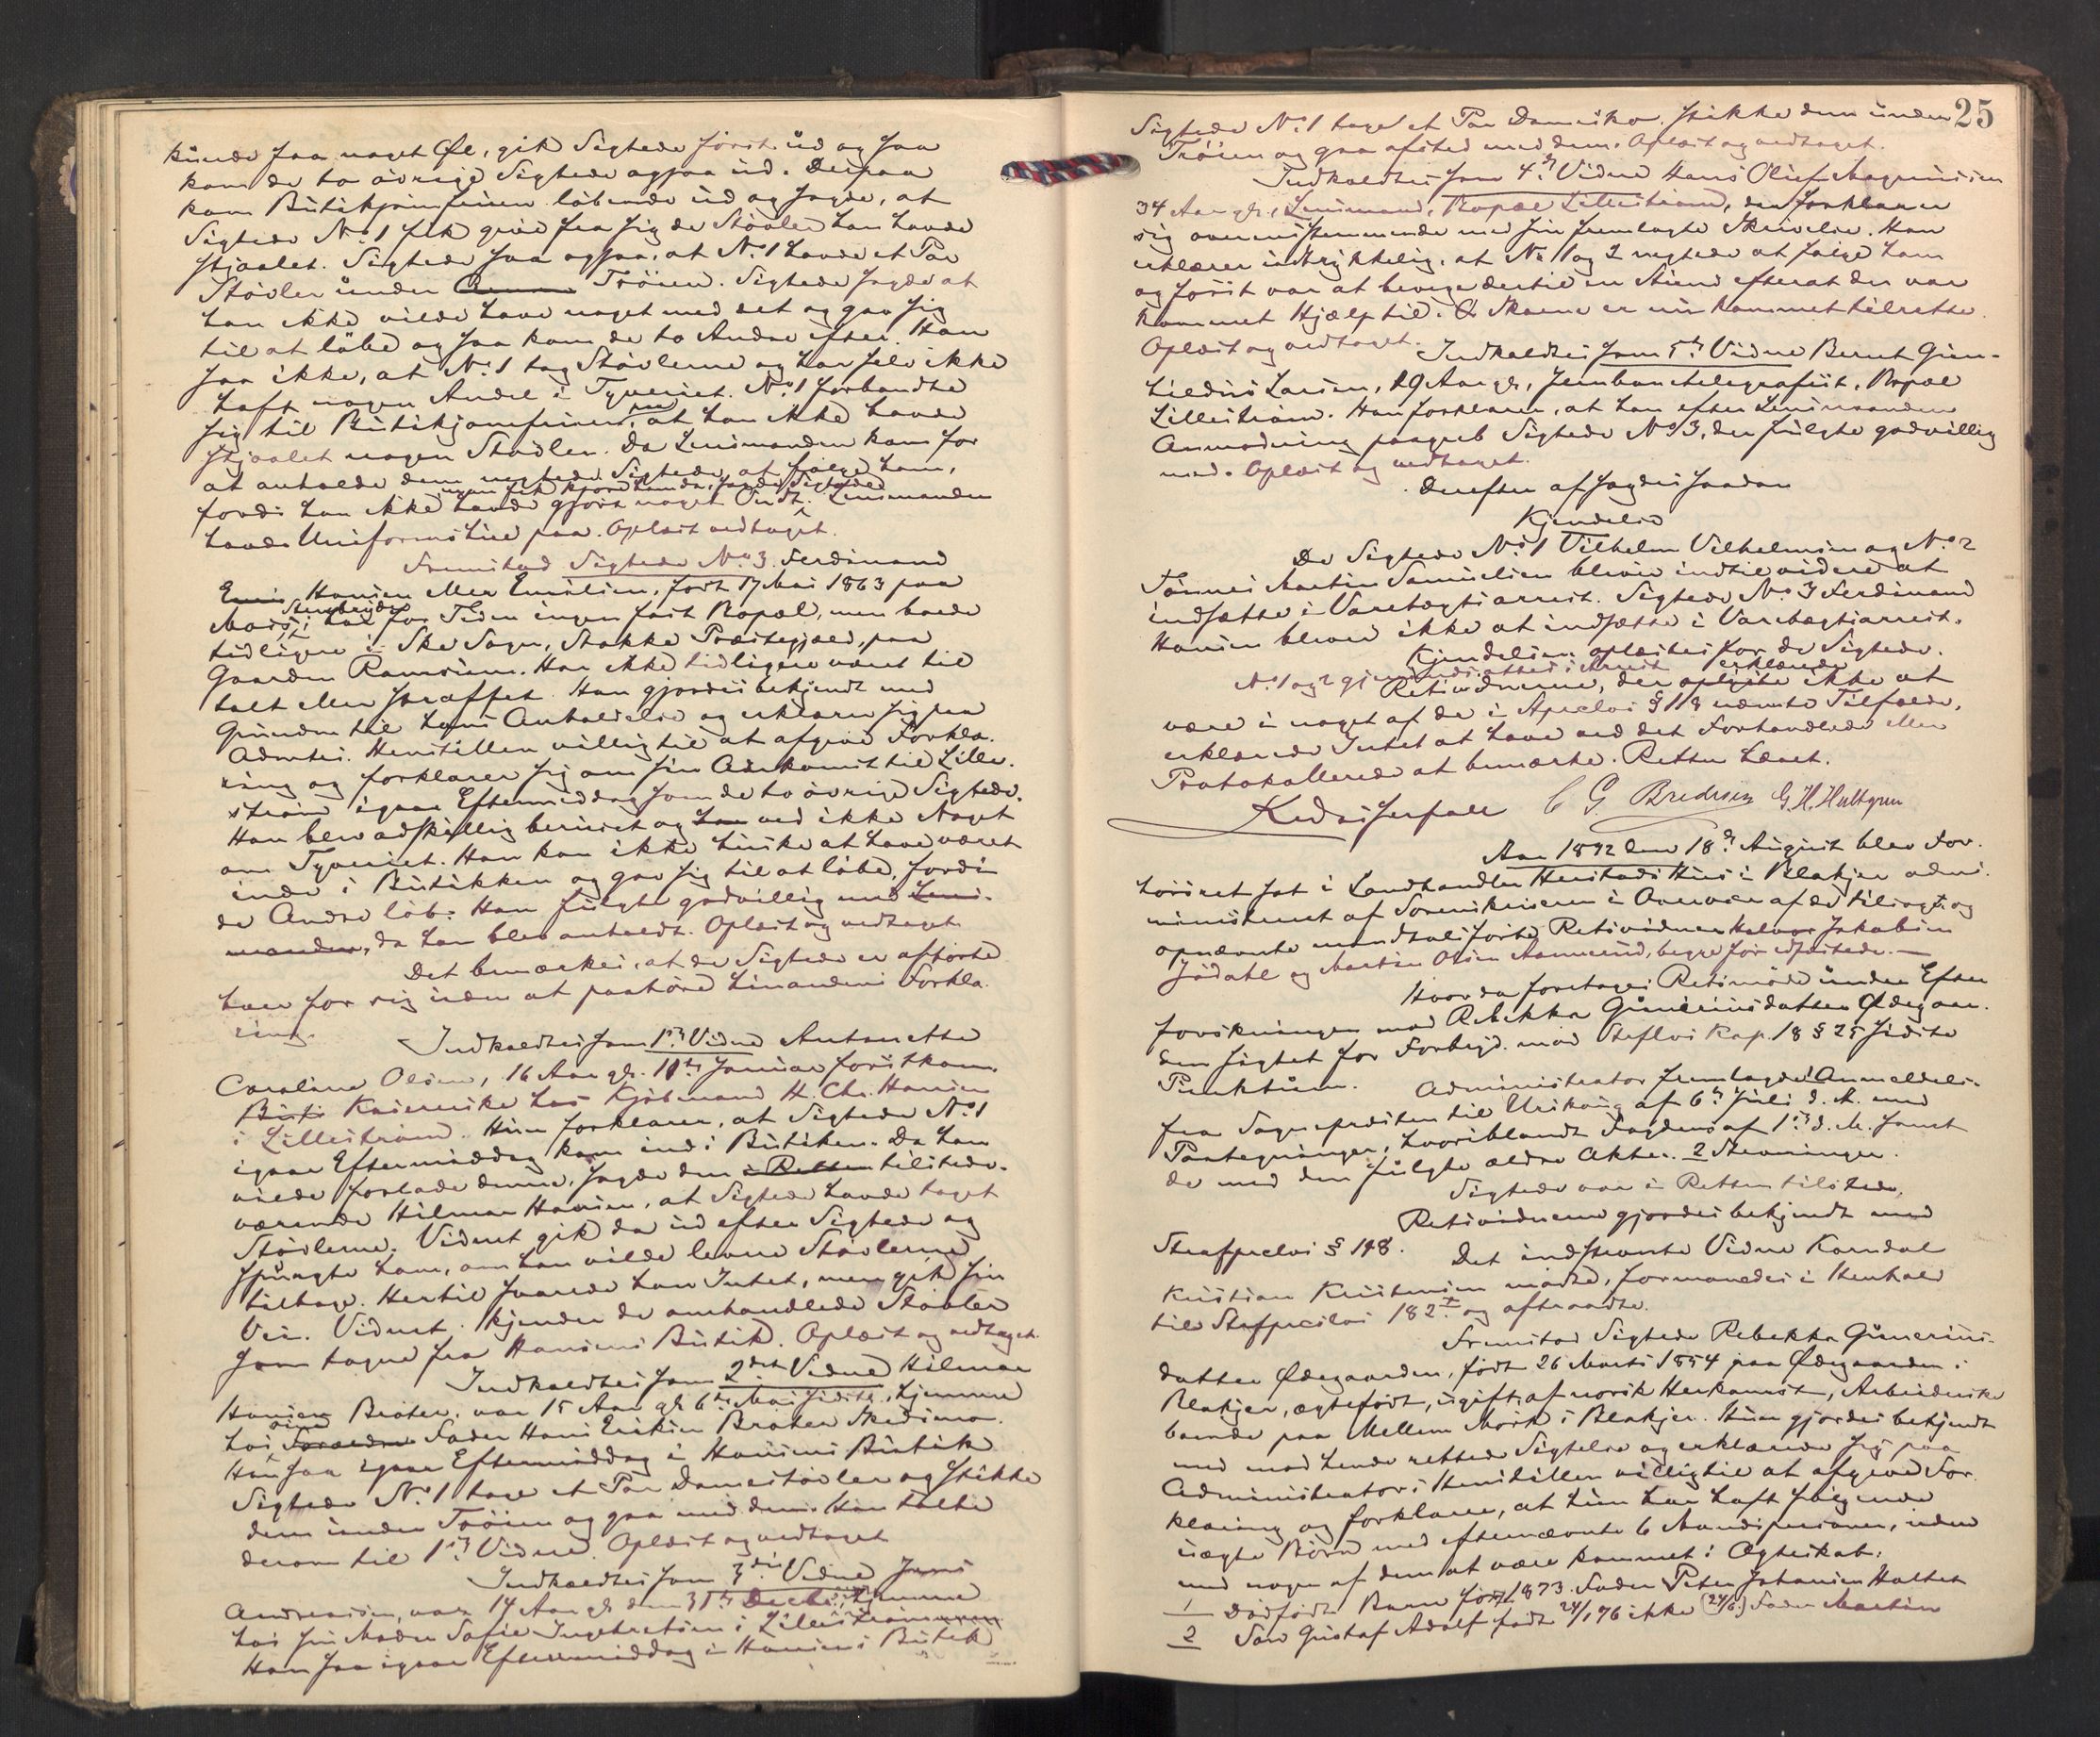 kunde faa noget Øl, gik Sigtede först ud og saa
kom de to övrige Sigtede ogsaa ud. Derpaa
kom Butikjomfruen löbende ud og sagde, at
Sigtede No 1 fik give fra sig de Stövler han havde
stjaalet. Sigtede saa ogsaa, at No 1 havde et Par
Stövler under Tröien. Sigtede sagde at
han ikke vilde have noget med det og gav sig
til at löbe og saa kom de to Andre efter. Han
saa ikke, at No 1 tog Stövlerne og har selv ikke
haft nogen Andel i Tyveriet. No 1 forbandte
sig til Butikjomfruen paa, at han ikke havde
stjaalet nogen Stövler. Da Lensmanden kom for
at anholde dem negtede Sigtede at fölge ham,
fordi han ikke havde gjort noget Ondt. Lensmanden
havde Uniformshue paa. Oplæst vedtaget.
Fremstod Sigtede No 3. Ferdinand
Hansen eller Emilsen, födt 17 Mai 1863 paa
Moss, Stenbryder har for Tiden ingen fast Bopæl, men boede
tidligere i Ske Sogn, Stokke Præstegjæld, paa
Gaarden Ramsum. Har ikke tidligere været til
talt eller straffet. Han gjordes bekjendt med
Grunden til hans Anholdelse og erklærer sig paa
Admtrs. Henstillen villig til at afgive Forkla-
ring og forklarer sig om sin Ankomst til Lille-
ström igaar Eftermiddag som de to övrige Sigtede.
Han blev adskillig beruset og ved ikke Noget
om Tyveriet. Han kan ikke huske at have været
inde i Butikken og gav sig til at löbe, fordi
de Andre löb. Han fulgte godvillig med Lens-
manden, da han blev anholdt. Oplæst og vedtaget.
Det bemærkes, at de Sigtede er afhörte
hver for sig uden at paahöre hinandens Forkla-
ring.
Indkaldtes som 1ste Vidne Antonette
Caroline Olsen, 16 Aar gl. 11te Januar förstkom.
Kasererske hos Kjöbmand H. Chr. Hansen
i Lilleström. Hun forklarer, at Sigtede No 1
igaar Eftermiddag kom ind i Butiken. Da han
vilde forlade denne, sagde den i Retten tilstede-
værende Hilmar Hansen, at Sigtede havde taget
Stövlerne. Vidnet gik da ud efter Sigtede og
spurgte ham, om han vilde levere Stövlerne
tilbage. Hertil svarede han Intet, men gik sin
Vei. Vidnet kjender de omhandlede Stövler
som tagne fra Hansens Butik. Oplæst og vedtaget.
Indkaldtes som 2det Vidne Hilmar
Hansen Bråter, var 15 Aar gl. 6te Mai sidste, hjemme
hos sine Forældre Fader Hans Eriksen Bråter Skedsmo.
Han saa igaar Eftermiddag i Hansens Butik
Sigtede No 1 tage et Par Damestövler og stikke
dem under Tröien og gaa med dem. Han talte
derom til 1ste Vidne. Oplæst og vedtaget
Indkaldtes som 3die Vidne Jens
Andreassen, var 14 Aar gl. den 31te Decbr, hjemme
hos sin Moder Sofie Ingebretsen i Lilleström
Han saa igaar Eftermiddag i Hansens Butik
25
Sigtede No 1 tage et Par Damesko. stikke dem under
Tröien og gaa afsted med dem. Oplæst og vedtaget.
Indkaldtes som 4de Vidne Hans Oluf Magnussen
34 Aar gl., Lensmand, Bopæl Lilleström, der forklarer
sig overensstemmende med sin fremlagte Skrivelse. Han
erklærer udtrykkelig, at No 1 og 2 negtede at fölge ham
og först var at bevæge dertil en Stund efterat der var
kommet Hjælp til. Skoene er nu kommet tilrette.
Oplæst og vedtaget.
Indkaldtes som 5te Vidne Bernt Gun-
hildius Larsen, 29 Aar gl., Jernbanetelegrafist, Bopæl
Lilleström. Han forklarer, at han efter Lensmandens
Anmodning paagreb Sigtede No 3, der fulgte godvillig
med. Oplæst og vedtaget.
Derefter afsagdes saadan
Kjendelse
De Sigtede No 1 Vilhelm Vilhelmsen og No 2
Tönnes Martin Samuelsen blive indtil videre at
indsætte i Varetægtsarrest. Sigtede No 3 Ferdinand
Hansen bliver ikke at indsætte i Varetægtsarrest.
Kjendelsen oplæstes for de Sigtede.
No 1 og 2 gjenindsattes i Arrest
Retsvidnerne, der erklærede ikke at
være i noget af de i Spcelov § 118 nævnte Tilfælde,
erklærede Intet at have ved det Forhandlede eller
Protokollerede at bemærke. Retten hævet.
C G. Bredesen G. H. Hultgren
Aar 1892 den 18de August blev For-
hörsret sat i Landhandler Herstads Hus i Blakjer admi-
ministreret af Sorenskriveren i Overvær af de tilsagte og
opnævnte mandtalsförte Retsvidner Halvor Jakobsen
Jödahl og Martin Olsen Aamund, begge för edfæstede. —
Hvorda foretoges Retsmöde under Efter
forskningen mod Rebekka Gunerinsdatter Ødegaar-
den sigtet for Forbryd. mod Strfflov Kap. 18 § 25 sidste
Punktum.
Administrator fremlagde Anmeldelse
fra Sognepræsten til Urskoug af 6te Juli d. A. med
Paategninger, hvoriblandt Fogdens af 1ste d. M. samt
de med den fulgte ældre Akter. 2 Stevninger.
Sigtede var i Retten tilstede.
Retsvidnerne gjordes bekjendt med
Straffprclov § 118.
Det indstevnte Vidne Karndal
Kristian Kristensen mödte, formanedes i Henhold
til Straffprcslov 182 og aftraadte.
Fremstod Sigtede Rebekka Gunerins-
datter Ødegaarden, födt 26 Marts 1854 paa Ødegaarden i
Blakjer, ægtefödt, ugift, af norsk Herkomst, Arbeiderske
boende paa Mellem Mörk i Blakjer. Hun gjordes bekjendt
med mod hende rettede Sigtelse og erklærede sig paa
Administrators Henstillen villig til at afgive For-
klaring og forklarer, at hun har haft fölgende
uægte Börn med efternævnte 6 Mandspersoner, uden
med nogen af dem at være kommet i Ægteskab:
1 Dödfödt Barn födt 1873. Fader Peter Johansen Haltet
2 Sön Gustaf Adolf födt 24/1 76 ikke (24/6) Fader Martin